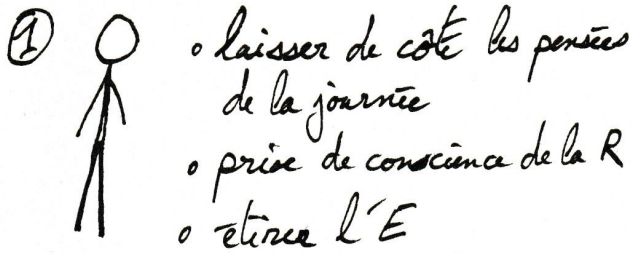 ① • laisser de côté les pensées
de la journée
• prise de conscience de la R
• étirer l'E